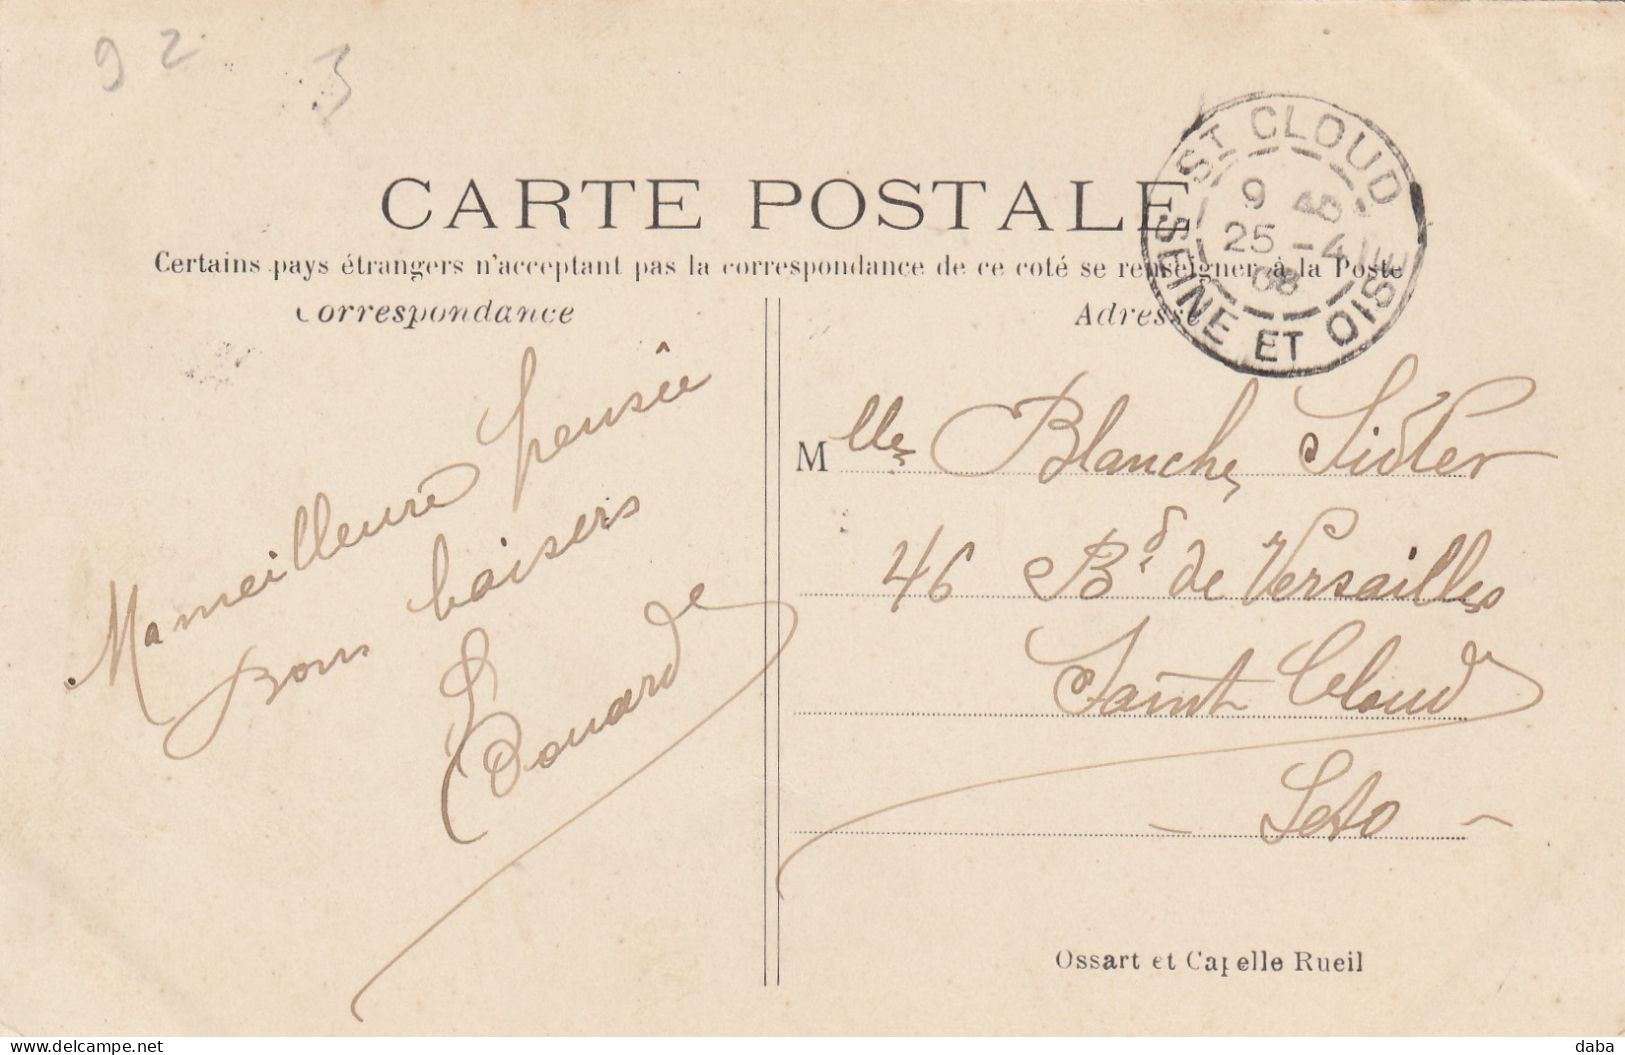 92
3
CARTE POSTALE
Certains pays étrangers n'acceptant pas la correspondance de ce coté se renseigner à la Poste
Correspondance
Adresse
ST CLOUD
9
25 -4
08
SEINE ET OISE
Ma meilleure pensée
Bons baisers
Edouard
Mlle Blanche Sidler
46 Bd de Versailles
Saint Cloud
- Seto -
Ossart et Capelle Rueil
delcampe.net
daba